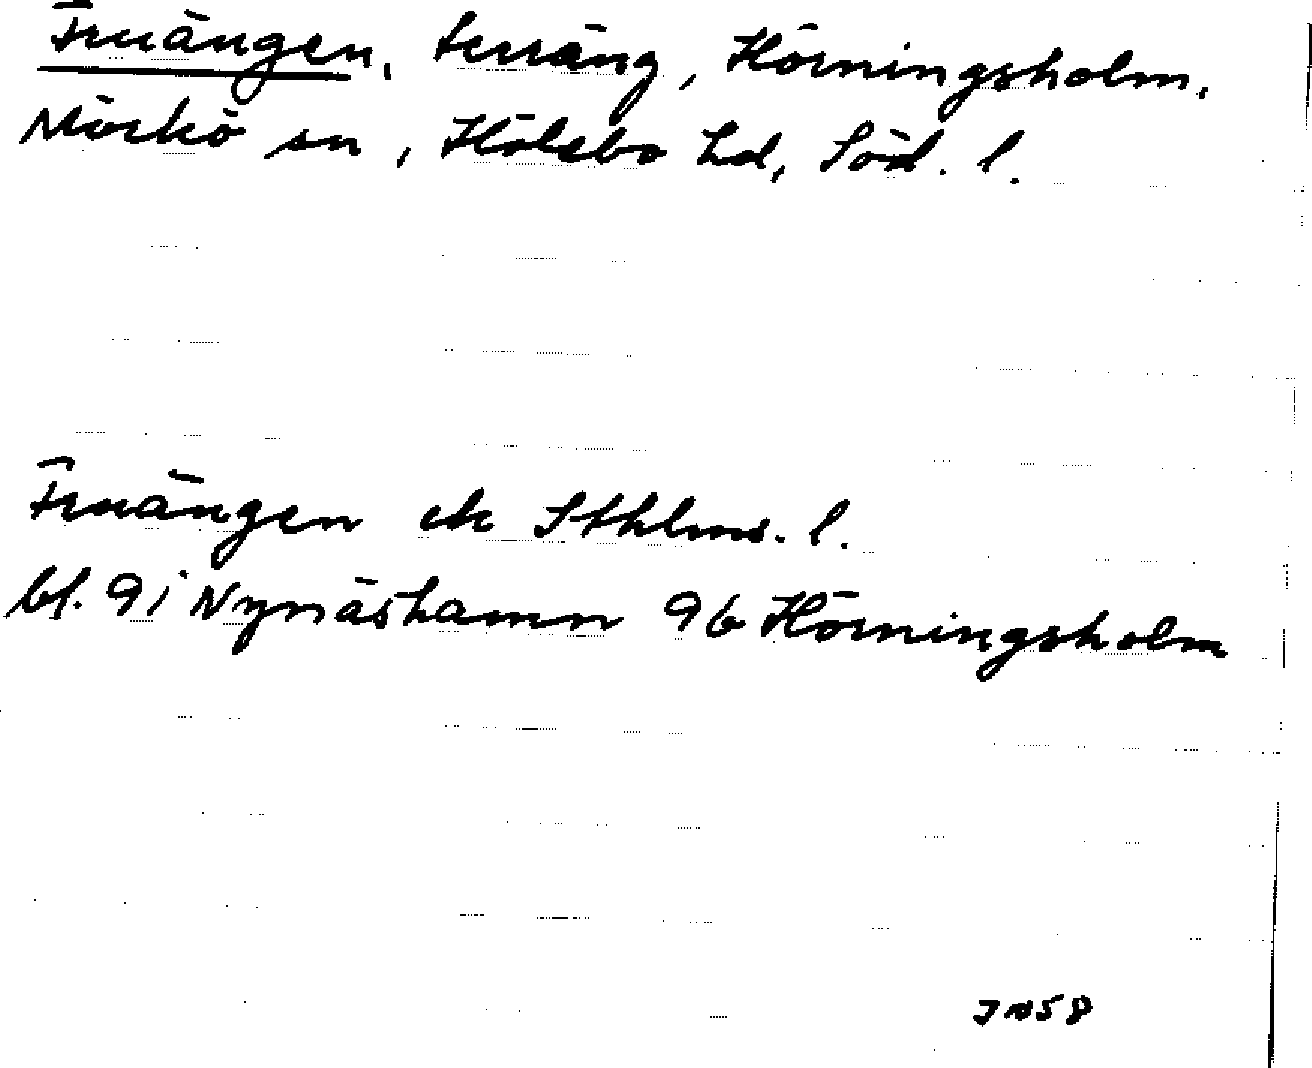 Fruängen, terräng, Hörningsholm,
Mörkö sn, Hölebo hd, Söd. l.
Fruängen ek Sthlms. l.
bl. 9 i Nynäshamn 96 Hörningsholm
JN58